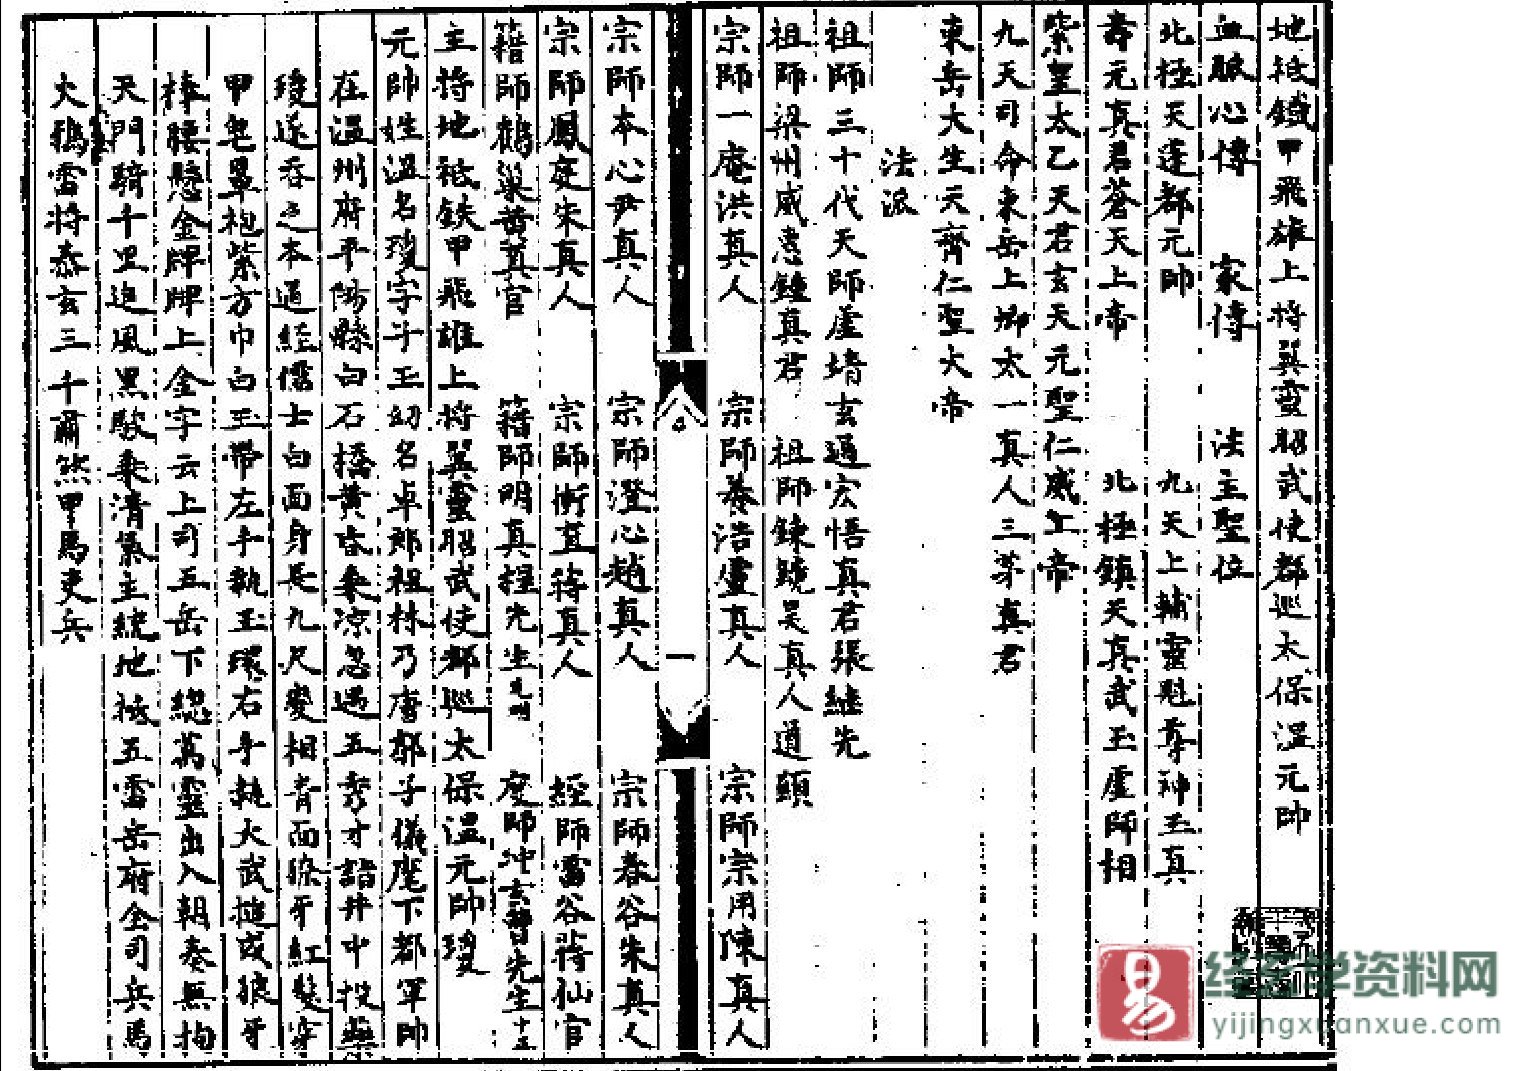 地祇鐵甲飛雄上將翼靈昭武使都巡太保溫元帥
血脉心傳 家傳 法主聖位
北極天蓬都元帥 九天上輔靈魁尊神玉真
壽元真君蒼天上帝 北極鎮天真武玉虛師相
紫皇太乙天君玄天元聖仁威上帝
九天司命東岳上卿太一真人三茅真君
東岳大生天齊仁聖大帝
法派
祖師三十代天師虛靖玄通宏悟真君張繼先
祖師梁州威惠鍾真君 祖師鍊鏡吴真人道顯
宗師一庵洪真人 宗師養浩盧真人 宗師宗用陳真人
一
宗師本心尹真人 宗師澄心趙真人 宗師春谷朱真人
宗師鳳庭朱真人 宗師衝真蒋真人 經師雷谷蒋仙官
籍師鶴巢黄真官 籍師明真程先生元明 度師冲玄先生
主將地祇鉄甲飛雄上將翼靈昭武使都巡太保溫元帥瓊
元帥姓溫名瓊字子玉幼名卓郎祖林乃唐郭子儀麾下都軍帥
在溫州府平陽縣白石橋黄昏乘凉忽遇五秀才詣井中投藥
瓊遂吞之本通經儒士白面身長九尺變相青面獠牙紅髮穿
甲皂罩袍紫方巾白玉帶左手執玉環右手執大武搥或狼牙
棒腰懸金牌牌上金字云上司五岳下總萬靈出入朝奏無拘
天門騎千里追風黑駿乘清氣主統地祇五雷岳府全司兵馬
火鴉雷將泰玄三千肅然甲馬吏兵
经玄学资料网
易
yijingxuanxue.com